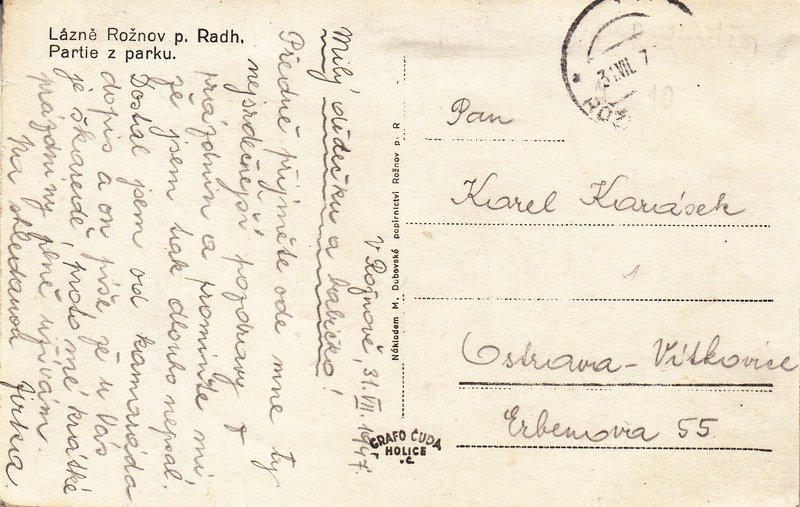 Lázně Rožnov p. Radh.
Partie z parku.
V Rožnově, 31. VII 1947.
Milý dědečku a babičko!
Předně přijměte ode mne ty
nejsrdečnější pozdravy z
prázdnin a promiňte mi
že jsem tak dlouho nepsal.
Dostal jsem od kamaráda
dopis a on píše že u Vás
je škaredě, proto mé krátké
prázdniny plně užívám.
Na shledanou Jirka
Nákladem M. Dubovské papírnictví Rožnov p. R
GRAFO ČUDA
HOLICE
v Č.
31. VII. 7
ROŽ
Pan
Karel Karásek
1
Ostrava-Vítkovice
Erbenova 55.
10